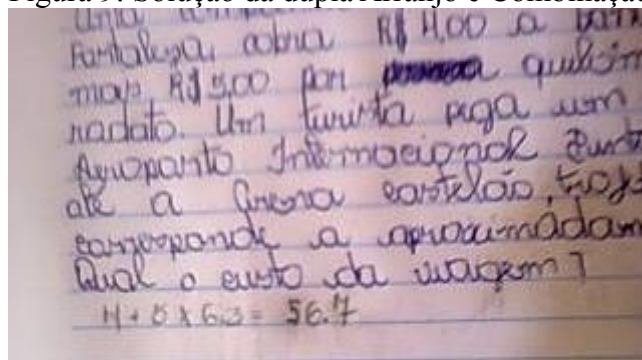 Figura 9: Solução da dupla Arranjo e Combinação
Uma
Fortaleza, cobra R$ 4,00 a
mais R$ 5,00 por quilôm
rodado. Um turista pega um
Aeroporto Internacional
até a Arena castelão, traj
corresponde a aproximadam
Qual o custo da viagem?
4 + 5 x 6.3 = 56.7